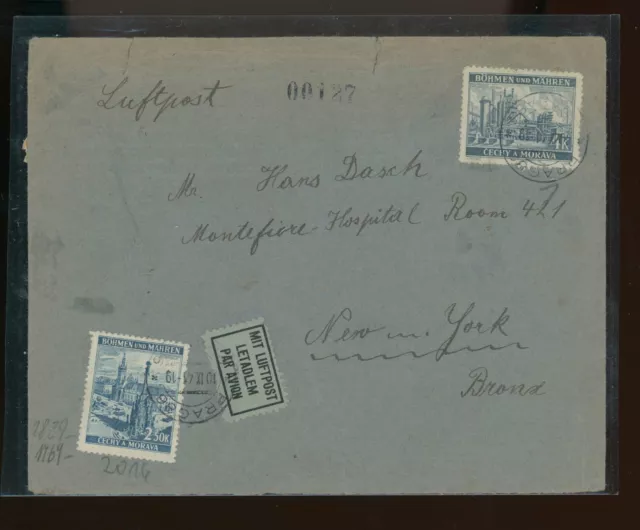 Luftpost
00127
BÖHMEN UND MÄHREN
4K
ČECHY A MORAVA
PRAG
Mr. Hans Dasch
Montefiore-Hospital Room 421
New York
Bronx
MIT LUFTPOST
LETADLEM
PAR AVION
BÖHMEN UND MÄHREN
2.50K
ČECHY A MORAVA
PRAG
2016